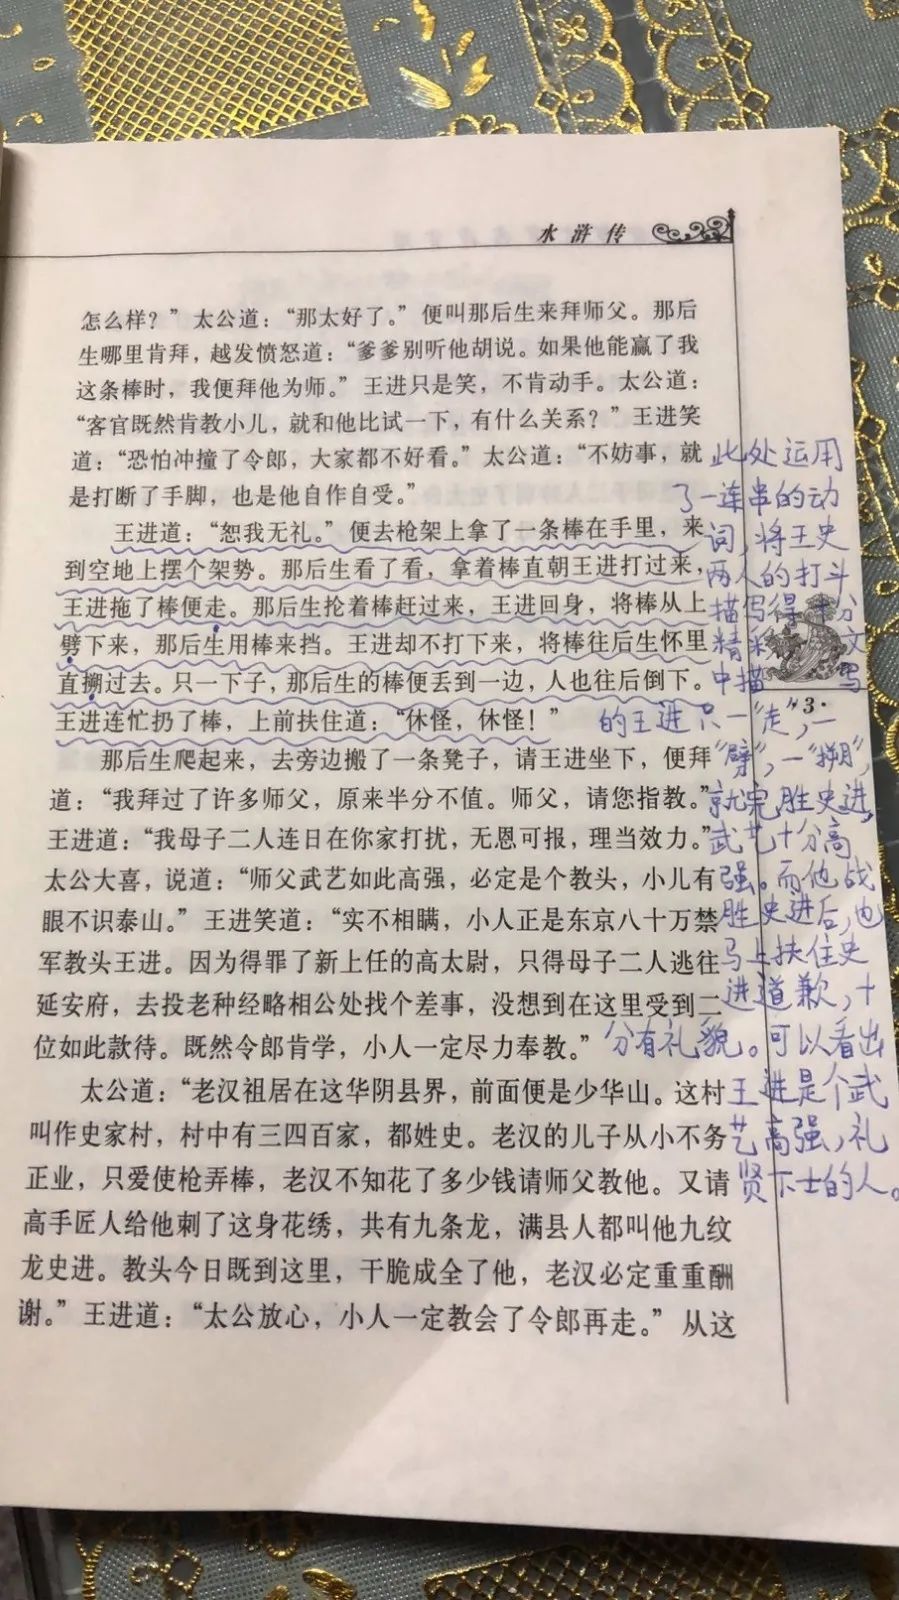 水浒传
怎么样？”太公道：“那太好了。”便叫那后生来拜师父。那后
生哪里肯拜，越发愤怒道：“爹爹别听他胡说。如果他能赢了我
这条棒时，我便拜他为师。”王进只是笑，不肯动手。太公道：
“客官既然肯教小儿，就和他比试一下，有什么关系？”王进笑
道：“恐怕冲撞了令郎，大家都不好看。”太公道：“不妨事，就
是打断了手脚，也是他自作自受。”
王进道：“恕我无礼。”便去枪架上拿了一条棒在手里，来
到空地上摆个架势。那后生看了看，拿着棒直朝王进打过来，
王进拖了棒便走。那后生抡着棒赶过来，王进回身，将棒从上
劈下来，那后生用棒来挡。王进却不打下来，将棒往后生怀里
直搠过去。只一下子，那后生的棒便丢到一边，人也往后倒下。
王进连忙扔了棒，上前扶住道：“休怪，休怪！”
那后生爬起来，去旁边搬了一条凳子，请王进坐下，便拜
道：“我拜过了许多师父，原来半分不值。师父，请您指教。”
王进道：“我母子二人连日在你家打扰，无恩可报，理当效力。”
太公大喜，说道：“师父武艺如此高强，必定是个教头，小儿有
眼不识泰山。”王进笑道：“实不相瞒，小人正是东京八十万禁
军教头王进。因为得罪了新上任的高太尉，只得母子二人逃往
延安府，去投老种经略相公处找个差事，没想到在这里受到二
位如此款待。既然令郎肯学，小人一定尽力奉教。”
太公道：“老汉祖居在这华阴县界，前面便是少华山。这村
叫作史家村，村中有三四百家，都姓史。老汉的儿子从小不务
正业，只爱使枪弄棒，老汉不知花了多少钱请师父教他。又请
高手匠人给他刺了这身花绣，共有九条龙，满县人都叫他九纹
龙史进。教头今日既到这里，干脆成全了他，老汉必定重重酬
谢。”王进道：“太公放心，小人一定教会了令郎再走。”从这
·3·
此处运用
了一连串的动
词，将王史
两人的打斗
描写得十分
精彩 文
中描写
的王进只一“走”，一
“劈”，一“搠”，
就完胜史进，
武艺十分高
强。而他战
胜史进后，也
马上扶住史
进道歉，十
分有礼貌。可以看出
王进是个武
艺高强，礼
贤下士的人。